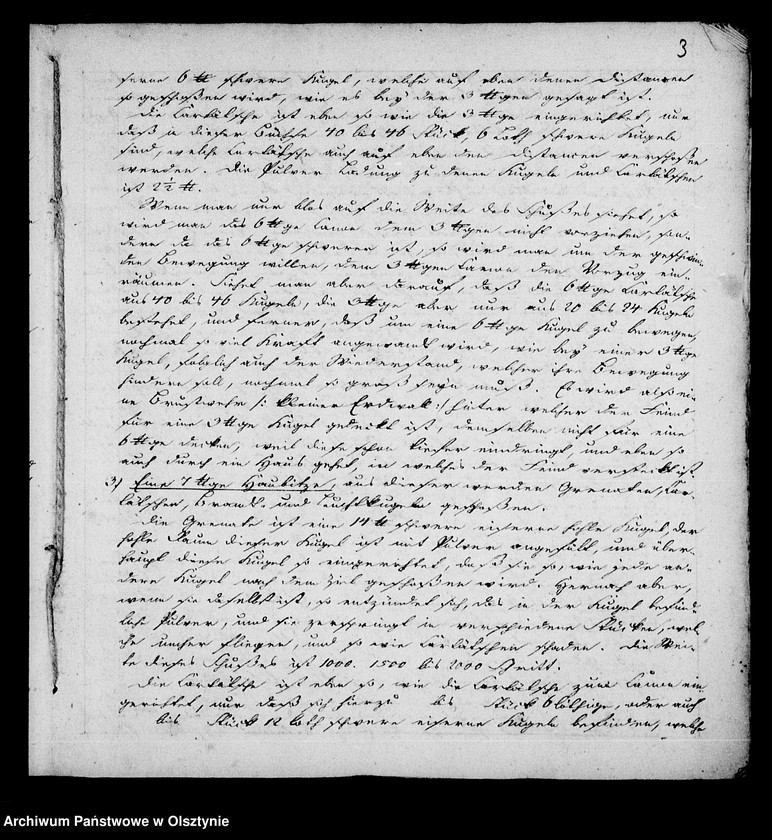 3
serne 6 ℔ schwere Kugel, welche auf eben denen Distancen
so geschoßen wird, wie es bey der 3 ℔gen gesagt ist.
Die Cartätsche ist eben so wie die 3 ℔ge eingerichtet, nur
daß in dieser Büchse 40 bis 46 Stück, 6 Loth schwere Kugeln
sind, welche Cartätsche auch auf eben den Distancen verschoßen
werden. Die Pulver Ladung zu denen Kugeln und Cartätschen
ist 2½ ℔.
Wenn man nur blos auf die Weite des Schußes siehet, so
wird man das 6 ℔ge Canon dem 3 ℔gen nicht vorziehen, son-
dern da das 6 ℔ge schwerer ist, so wird man um der geschwin-
den Bewegung willen, dem 3 ℔gen Canon den Vorzug ein-
räumen. Siehet man aber darauf, daß die 6 ℔ge Cartätsche
aus 40 bis 46 Kugeln, die 3 ℔ge aber nur aus 20 bis 24 Kugeln
bestehet, und ferner, daß um eine 6 ℔ge Kugel zu bewegen,
nochmal so viel Kraft angewandt wird, wie bey einer 3 ℔ge
Kugel, folglich auch der Wiederstand, welcher ihre Bewegung
hindern soll, nochmal so groß seyn muß. Es wird also ei-
ne Brustwehr /: kleiner Erdwall :/ hinter welcher der Feind
für eine 3 ℔ge Kugel gedeckt ist, denselben nicht für eine
6 ℔ge decken, weil diese schon tiefer eindringt, und eben so
auch durch ein Haus gehet, in welches der Feind versteckt ist.
3) Eine 7 ℔ge Haubitze, aus dieser werden Grenaten, Car-
tätschen, Brand- und Leuchtkugeln geschoßen.
Die Grenate ist eine 14 ℔ schwere eiserne hohle Kugel, der
hohle Raum dieser Kugel ist mit Pulver angefült, und über-
haupt diese Kugel so eingerichtet, daß sie so, wie jede an-
dere Kugel nach dem Ziel geschoßen wird. Hernach aber,
wenn sie daselbst ist, so entzündet sich das in der Kugel befind-
liche Pulver, und sie zerspringt in verschiedene Stücken, wel-
che umher fliegen, und so wie Cartätschen schaden. Die Wei-
te dieses Schußes ist 1000. 1500 bis 2000 Schritt.
Die Cartätsche ist eben so, wie die Cartätsche zum Canon ein-
gerichtet, nur daß sich hierzu bis Stück 6 löthige, oder auch
bis Stück 12 Loth schwere eiserne Kugeln befinden, welche
Archiwum Państwowe w Olsztynie